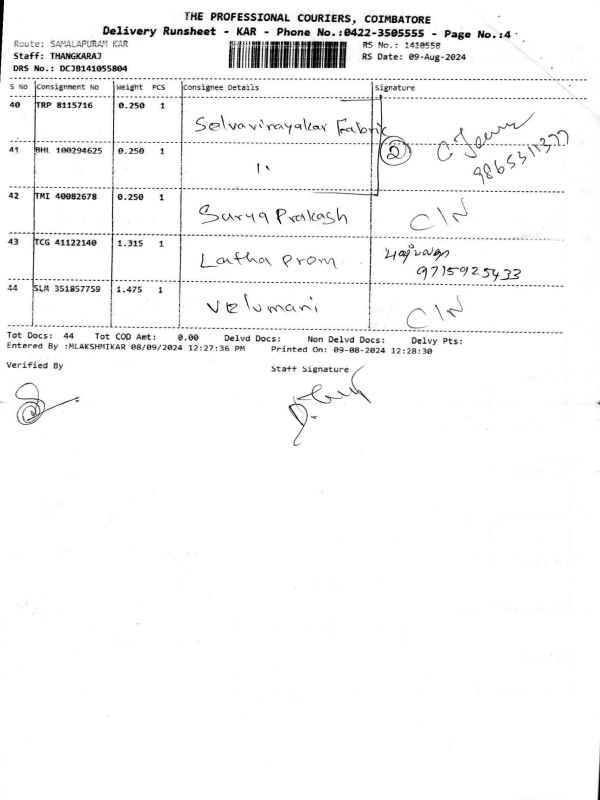 THE PROFESSIONAL COURIERS, COIMBATORE
Delivery Runsheet - KAR - Phone No.:0422-3505555 - Page No.:4
Route: SAMALAPURAM KAR RS No.: 1410558
Staff: THANGKARAJ RS Date: 09-Aug-2024
DRS No.: DCJB141055804
S No Consignment No Weight PCS Consignee Details Signature
40 TRP 8115716 0.250 1 Selvavinayakar Fabric
2 9865311377
41 BHL 100294625 0.250 1 "
42 TMI 40082678 0.250 1 Surya Prakash C/N
43 TCG 41122140 1.315 1 Latha prom
9715925433
44 SLM 351857759 1.475 1 Velumani C/N
Tot Docs: 44 Tot COD Amt: 0.00 Delvd Docs: Non Delvd Docs: Delvy Pts:
Entered By :MLAKSHMIKAR 08/09/2024 12:27:36 PM Printed On: 09-08-2024 12:28:30
Verified By Staff Signature